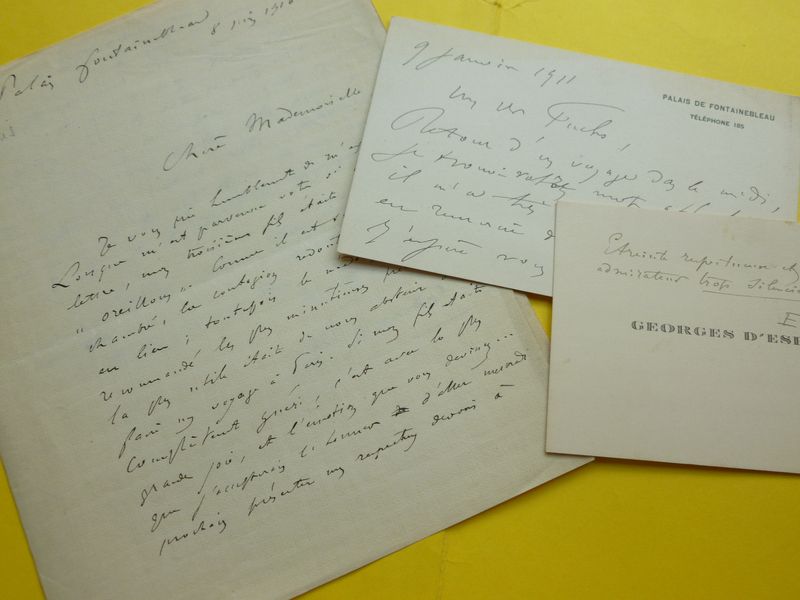 Palais Fontainebleau
8 juin 1910
Chère Mademoiselle
Je vous prie humblement de m'ex
Lorsque m'est parvenue votre si
lettre, mon troisième fils était
"oreillons". Comme il est
chambre, la contagion
en lieu ; toutefois le méde
recommandé les plus minutieuses pré
le plus utile était de nous abstenir
mon voyage à Paris. Si mon fils était
complètement guéri, c'est avec la plus
grande joie, et l'émotion que vous devinez...
que j'accepterais d'aller mercredi
prochain présenter mes respectueux devoirs à
9 janvier 1911
PALAIS DE FONTAINEBLEAU
TÉLÉPHONE 185
Fuchs,
Retour d'un voyage dans le midi,
je trouve votre mot
il m'a très
en remercie
J'espère vous
respectueuse et
admirateur trop silencie
E
GEORGES D'ESP